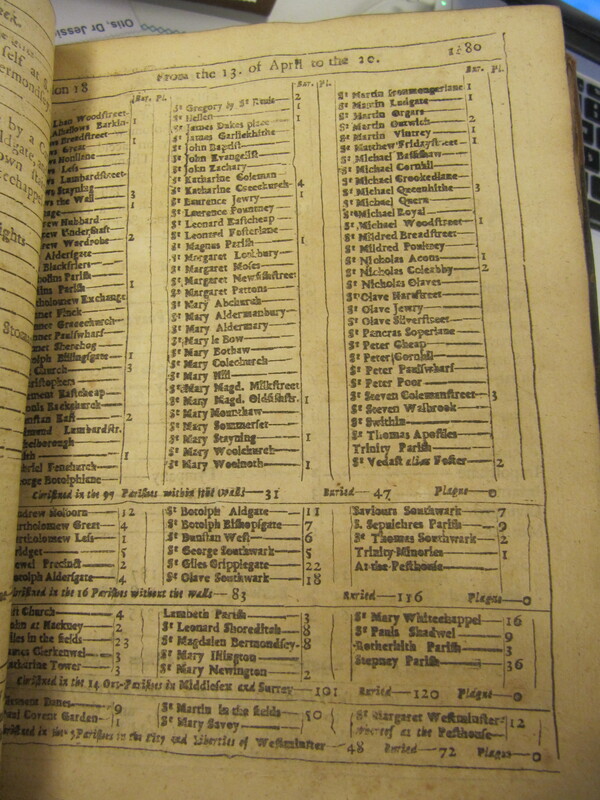 Otis, Dr Jessi
on 18 From the 13. of April to the 20. 1680
Bur. Pl.
Woodstreet
Barkin 1
Breedstreet
Great 1
Honilane
Less
Lambardstreet
Staynings
the Wall 3
1
Hubbard
Undershaft
Wardrobe 2
Aldersgate
Blackfriers
Parish
Parish 1
tholomew Exchange
Finck
Gracechurch
Paulswharf
Sherehog
Billingsgate 1
Church 3
Eastcheap
Backchurch
nstan East 2
Lambardstr.
1
briel Fenchurch
orge Botolphlane
Bur. Pl.
St Gregory by St Pauls 2
St Hellen 1
St James Dukes place 1
St James Garlickhithe
St John Baptist
St John Evangelist
St John Zachary
St Katharine Coleman
St Katharine Creechurch 4
St Laurence Jewry 1
St Laurence Pountney
St Leonard Eastcheap
St Leonard Fosterlane
St Magnus Parish 1
St Margaret Lothbury
St Margaret Moses
St Margaret Newfishstreet
St Margaret Pattons
St Mary Abchurch
St Mary Aldermanbury
St Mary Aldermary
St Mary le Bow
St Mary Bothaw
St Mary Colechurch
St Mary Hill
St Mary Magd. Milkstreet
St Mary Magd. Oldfishstr. 1
St Mary Mounthaw
St Mary Sommerset
St Mary Stayning 1
St Mary Woolchurch
St Mary Woolnoth 1
Bur. Pl.
St Martin Ironmongerlane 1
St Martin Ludgate 1
St Martin Orgars
St Martin Outwich 2
St Martin Vintrey 1
St Matthew Fridaystreet 1
St Michael Bassishaw
St Michael Cornhil
St Michael Crookedlane
St Michael Queenhithe 3
St Michael Quern
St Michael Royal
St Michael Woodstreet 1
St Mildred Breadstreet
St Mildred Poultrey
St Nicholas Acons 1
St Nicholas Coleabby 2
St Nicholas Olaves
St Olave Hartstreet
St Olave Jewry
St Olave Silverstreet
St Pancras Soperlane
St Peter Cheap
St Peter Cornhil
St Peter Paulswharf
St Peter Poor
St Steven Colemanstreet 3
St Steven Walbrook
St Swithin
St Thomas Apostles
Trinity Parish
St Vedast alias Foster 2
Christned in the 97 Parishes within the Walls 31 Buried 47 Plague 0
ndrew Holborn 12
artholomew Great 4
artholomew Less 1
ridget 5
ewel Precinct 2
otolph Aldersgate 4
St Botolph Aldgate 11
St Botolph Bishopsgate 7
St Dunstan West 6
St George Southwark 5
St Giles Cripplegate 22
St Olave Southwark 18
Saviours Southwark 7
S. Sepulchres Parish 9
St Thomas Southwark 2
Trinity Minories 1
At the Pesthouse
Christned in the 16 Parishes without the Walls 83 Buried 116 Plague 0
Church 4
ohn at Hackney 2
iles in the fields 23
ames Clerkenwel 3
atherine Tower 3
Lambeth Parish 3
St Leonard Shoreditch 8
St Magdalen Bermondsey 8
St Mary Islington
St Mary Newington 2
St Mary Whitechappel 16
St Pauls Shadwel 9
Rotherhith Parish 3
Stepney Parish 36
Christned in the 14 Out-Parishes in Middlesex and Surrey 101 Buried 120 Plague 0
lement Danes 9
Covent Garden 1
St Martin in the fields 50
St Mary Savoy
St Margaret Westminster 12
whereof at the Pesthouse
ristned in the 5 Parishes in the City and Liberties of Westminster 48 Buried 72 Plague 0